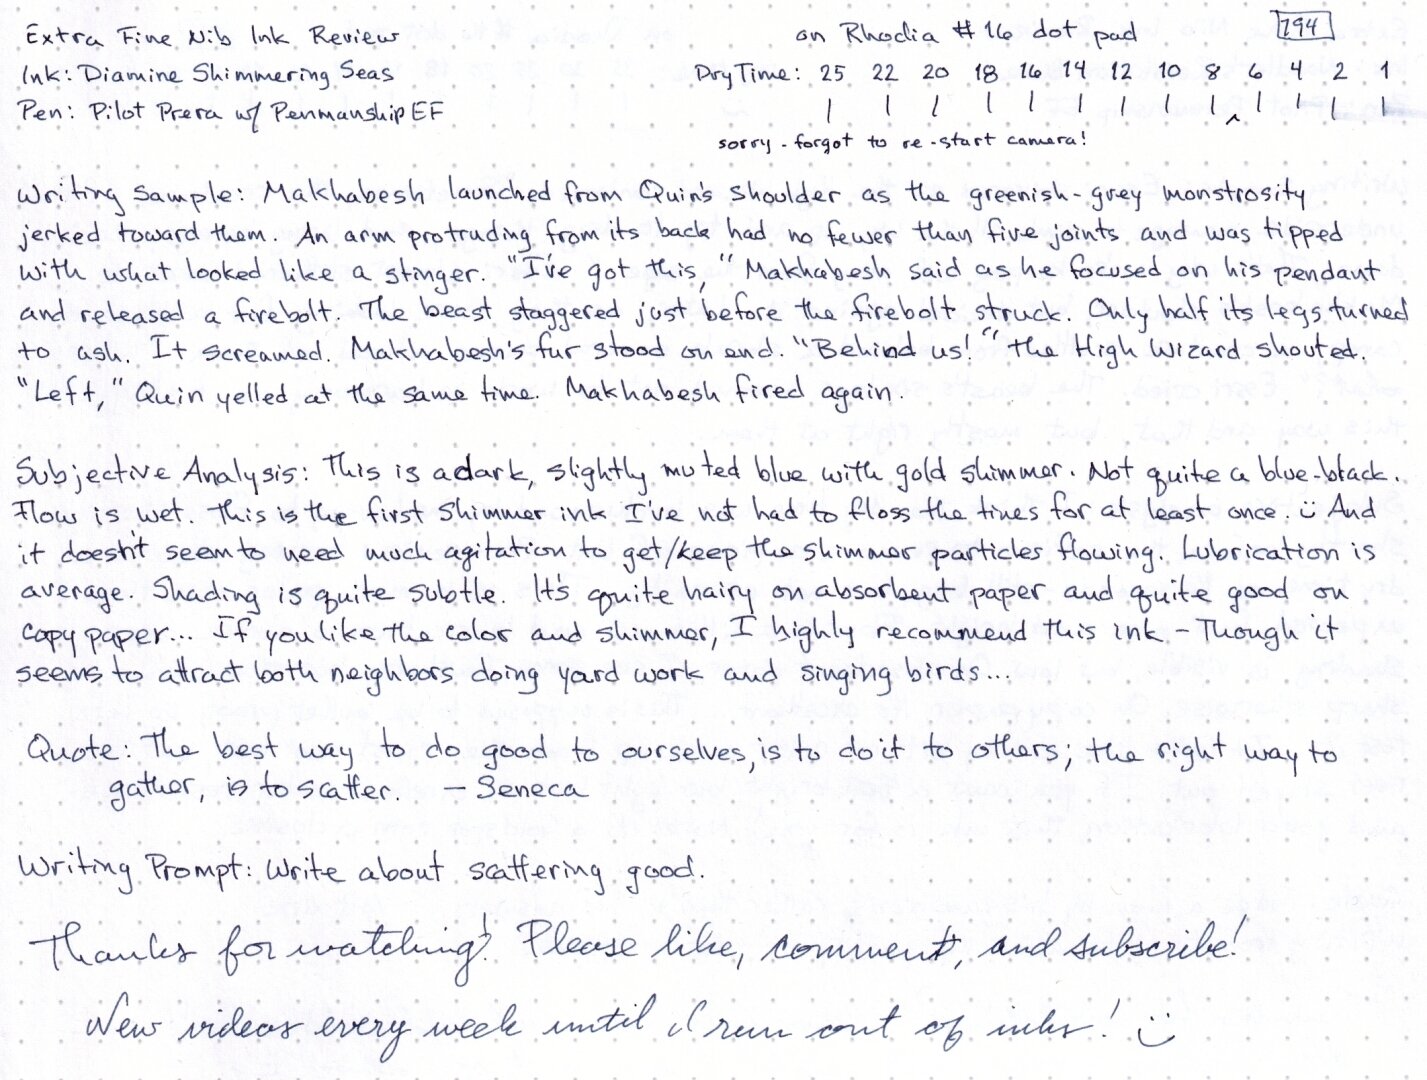 Extra Fine Nib Ink Review on Rhodia #16 dot pad 294
Ink: Diamine Shimmering Seas Dry Time: 25 22 20 18 16 14 12 10 8 6 4 2 1
Pen: Pilot Prera w/ Penmanship EF
sorry - forgot to re-start camera!
Writing Sample: Makhabesh launched from Quin's shoulder as the greenish-grey monstrosity
jerked toward them. An arm protruding from its back had no fewer than five joints and was tipped
with what looked like a stinger. "I've got this," Makhabesh said as he focused on his pendant
and released a firebolt. The beast staggered just before the firebolt struck. Only half its legs turned
to ash. It screamed. Makhabesh's fur stood on end. "Behind us!" the High Wizard shouted.
"Left," Quin yelled at the same time. Makhabesh fired again.
Subjective Analysis: This is a dark, slightly muted blue with gold shimmer. Not quite a blue-black.
Flow is wet. This is the first shimmer ink I've not had to floss the tines for at least once. :) And
it doesn't seem to need much agitation to get/keep the shimmer particles flowing. Lubrication is
average. Shading is quite subtle. It's quite hairy on absorbent paper and quite good on
copy paper... If you like the color and shimmer, I highly recommend this ink - Though it
seems to attract both neighbors doing yard work and singing birds...
Quote: The best way to do good to ourselves, is to do it to others; the right way to
gather, is to scatter. - Seneca
Writing Prompt: Write about scattering good.
Thanks for watching! Please like, comment, and subscribe!
New videos every week until I run out of inks! :)